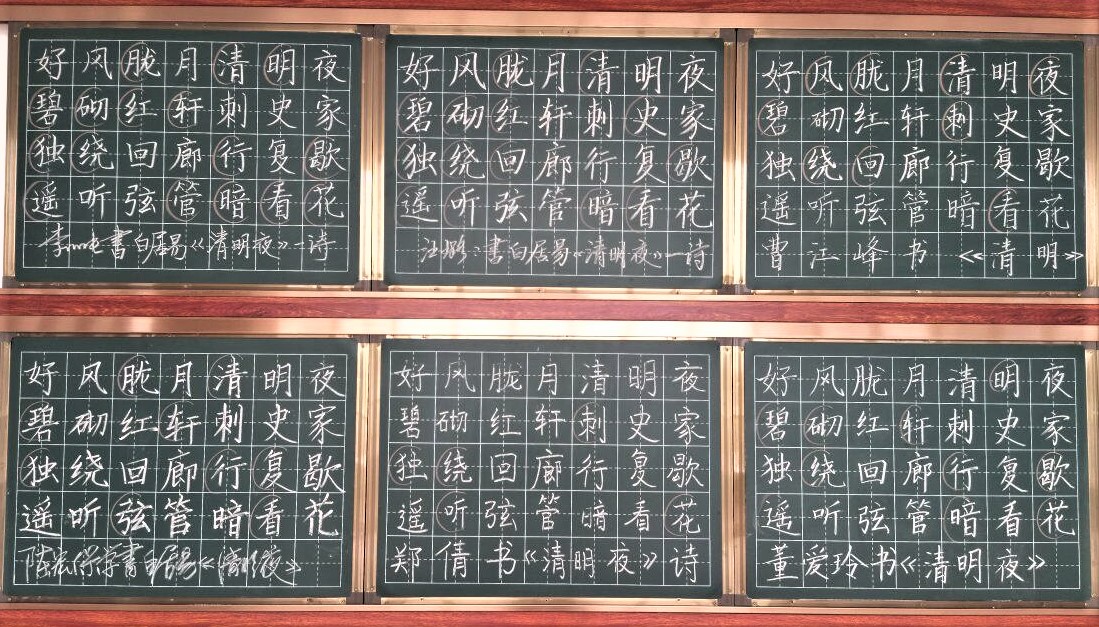 好风胧月清明夜
碧砌红轩刺史家
独绕回廊行复歇
遥听弦管暗看花
李 書白居易《清明夜》一诗
好风胧月清明夜
碧砌红轩刺史家
独绕回廊行复歇
遥听弦管暗看花
汪 書白居易《清明夜》一诗
好风胧月清明夜
碧砌红轩刺史家
独绕回廊行复歇
遥听弦管暗看花
曹江峰书《清明》
好风胧月清明夜
碧砌红轩刺史家
独绕回廊行复歇
遥听弦管暗看花
書白居易《清明夜》
好风胧月清明夜
碧砌红轩刺史家
独绕回廊行复歇
遥听弦管暗看花
郑倩书《清明夜》诗
好风胧月清明夜
碧砌红轩刺史家
独绕回廊行复歇
遥听弦管暗看花
董爱玲书《清明夜》